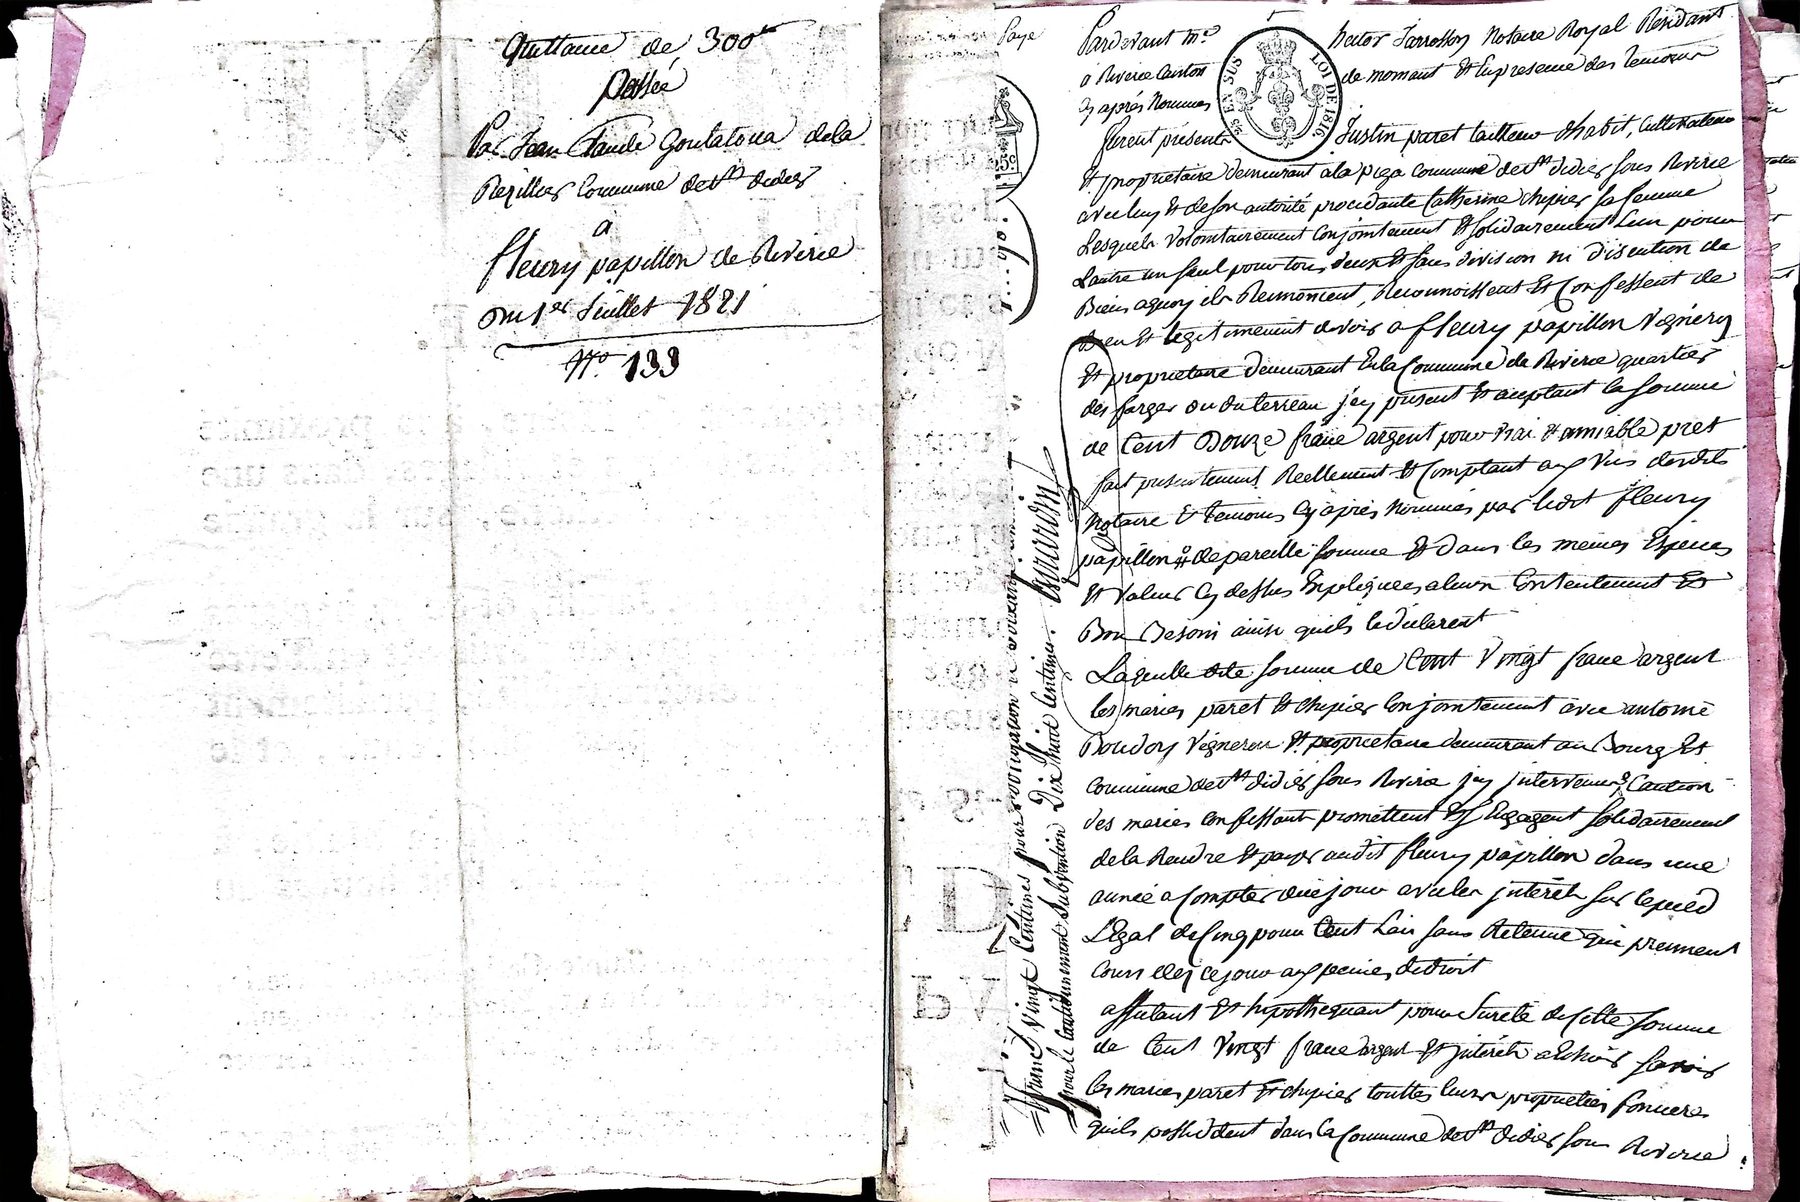 Quittance de 300#
Passée
Par Jean Claude Goulatoua dela
Rezillier Commune de St didier
a
fleury papillon de Riverie
Du 1er Juillet 1821
No. 133
Paye
Pardevant Me hector Jarrosson Notaire Royal Residant
à Riverie Canton de mornant Et En presence des temoins
Cy après Nommés
EN SUS LOI DE 1816
furent présents Justin paret tailleur d'habit, Cultivateur
Et proprietaire demeurant à la piza Commune de St didier sous Riverie
avec luy Et de son autorité procedante Catherine chipier sa femme
Lesquels Volontairement Conjointement Et solidairement L'un pour
L'autre un seul pour tous deux Et sans division ni discution de
Biens aquoy ils Rennoncent, Reconnoissent Et Confessent de
Bien Et legitimement devoir a fleury papillon Vigneron
Et proprietaire demeurant En la Commune de Riverie quartier
des farges ou du terreau jcy present Et aceptant la somme
de Cent Douze franc argent pour vrai Et amiable pret
fait presentement Reellement Et Comptant aux Vus desdits
Notaire Et temoins Cy après nommés par ledit fleury
papillon Et de pareille somme Et dans les memes Especes
Et valeur Cy dessus Expliquées a leur Contentement Et
Bon Besoin ainsi quils le déclarent
Laquelle dite somme de Cent Vingt franc argent
les maries paret Et chipier Conjointement avec antoine
Boudoy Vigneron Et proprietaire demeurant au Bourg Et
Commune de St didier sous Riverie jcy intervenu Caution
des maries Confessant promettent Et s'Engagent solidairement
de la Rendre Et payer audit fleury papillon dans une
année a Compter de ce jour avec les jnterêts sur le pied
L'Egal de Cinq pour Cent L'an sans Retenue qui prennent
Cours dès ce jour aux peines de droit
affectant Et hypothequant pour sureté de Cette somme
de Cent Vingt franc argent Et jnterêts a Echoir savoir
les maries paret Et chipier touttes leurs proprietés foncieres
quils possèdent dans la Commune de St didier sous Riverie
franc Vingt Centimes pour obligation
pour le Cautionnement subvention Dix huit Centimes.